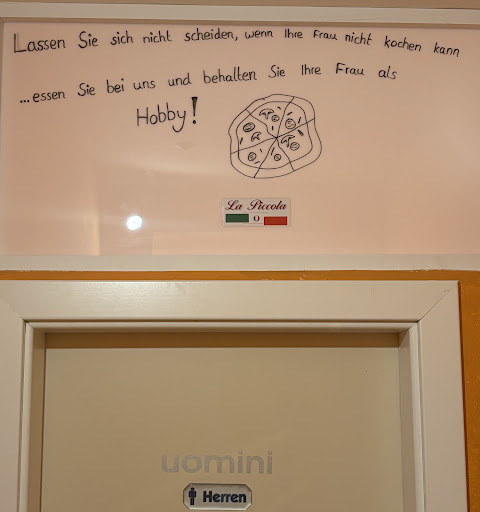 Lassen Sie sich nicht scheiden, wenn Ihre Frau nicht kochen kann
...essen Sie bei uns und behalten Sie Ihre Frau als
Hobby!
La Piccola
O
uomini
Herren